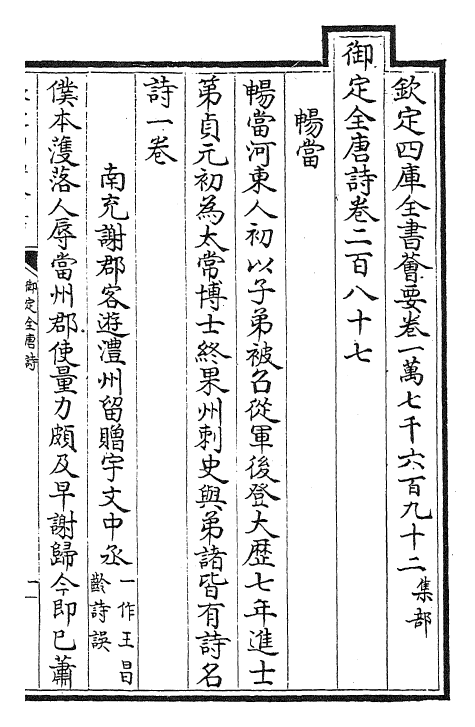 欽定四庫全書薈要卷一萬七千六百九十二 集部
御定全唐詩卷二百八十七
暢當
暢當河東人初以子弟被召從軍後登大歴七年進士
第貞元初為太常博士終果州刺史與弟諸皆有詩名
詩一卷
南充謝郡客遊澧州留贈宇文中丞 一作王昌
齡詩誤
僕本濩落人辱當州郡使量力頗及早謝歸今即已蕭
御定全唐詩
一